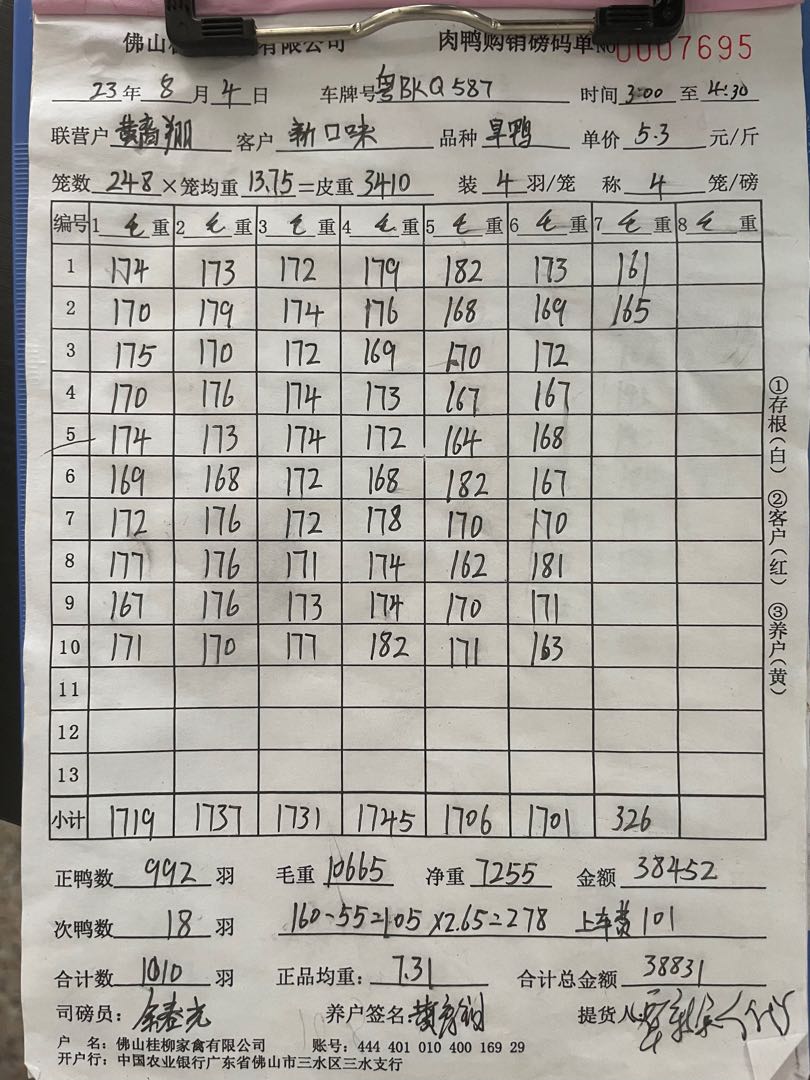 佛山桂 有限公司 肉鸭购销磅码单 NO 0007695
23年 8月 4日 车牌号 粤BKQ587 时间 3:00 至 4:30
联营户 黄高翔 客户 新口味 品种 旱鸭 单价 5.3 元/斤
笼数 248 ×笼均重 13.75 =皮重 3410 装 4 羽/笼 称 4 笼/磅
编号 1 毛 重 2 毛 重 3 毛 重 4 毛 重 5 毛 重 6 毛 重 7 毛 重 8 毛 重
1 174 173 172 179 182 173 161
2 170 179 174 176 168 169 165
3 175 170 172 169 170 172
4 170 176 174 173 167 167
5 174 173 174 172 164 168
6 169 168 172 168 182 167
7 172 176 172 178 170 170
8 177 176 171 174 162 181
9 167 176 173 174 170 171
10 171 170 177 182 171 163
11
12
13
小计 1719 1737 1731 1745 1706 1701 326
①存根(白) ②客户(红) ③养户(黄)
正鸭数 992 羽 毛重 10665 净重 7255 金额 38452
次鸭数 18 羽 160-55=105×2.65=278 上车费 101
合计数 1010 羽 正品均重: 7.31 合计总金额 38831
司磅员: 养户签名: 黄高翔 提货人:
户 名: 佛山桂柳家禽有限公司 账号: 444 401 010 400 169 29
开户行: 中国农业银行广东省佛山市三水区三水支行